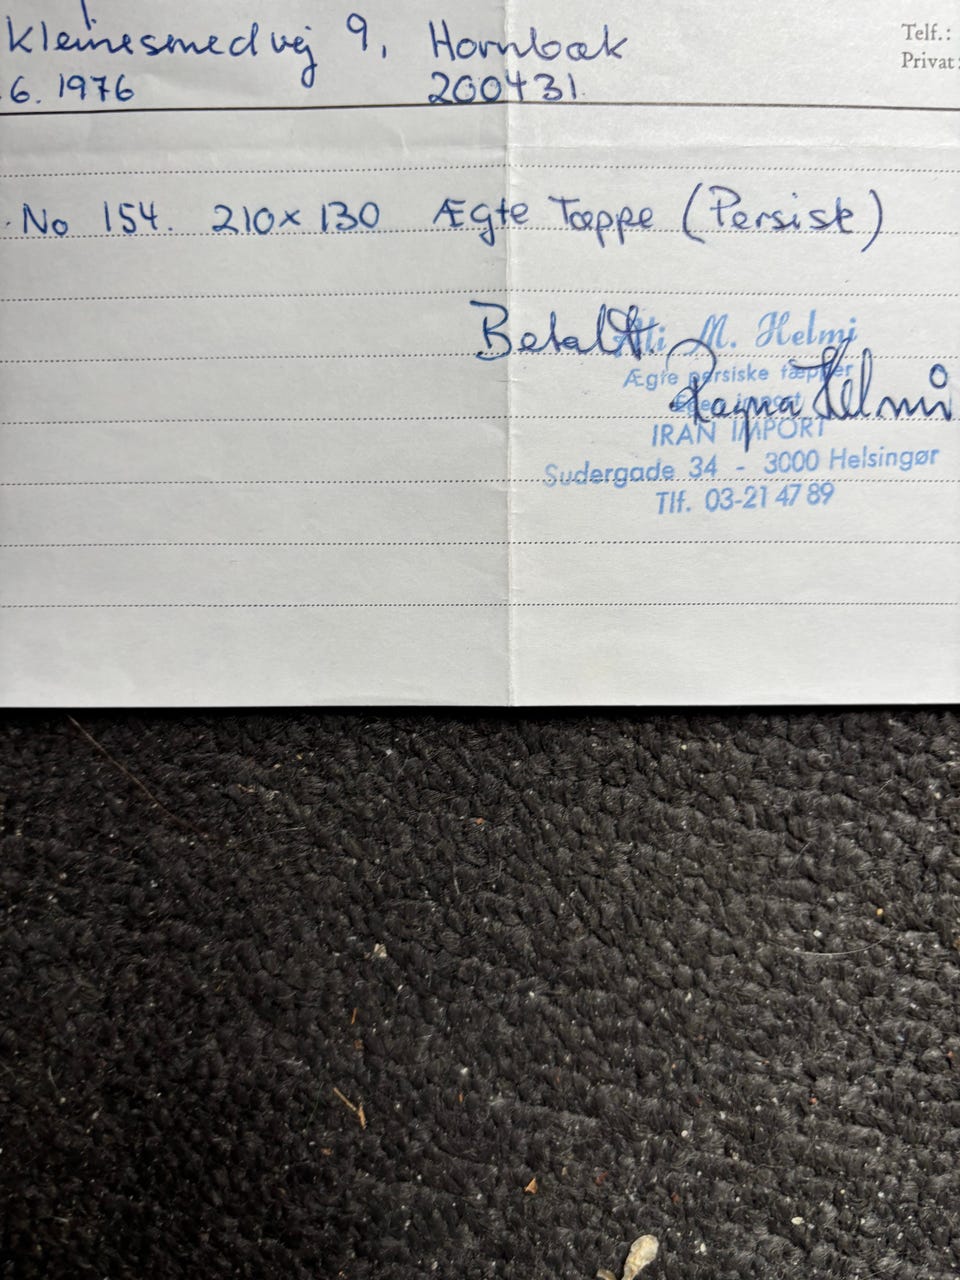 Kleinesmedvej 9, Hornbæk
Telf.:
Privat:
6. 1976 200431.
No 154. 210x130 Ægte Tæppe (Persisk)
Betalt.
Ali M. Helmi
Ægte persiske tæpper
Ragna Helmi
Egen import
IRAN IMPORT
Sudergade 34 - 3000 Helsingør
Tlf. 03-21 47 89